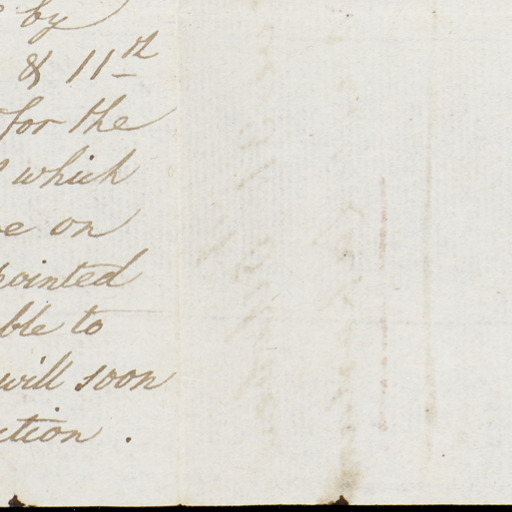 by
& 11th
for the
which
on
pointed
ble to
will soon
ction .